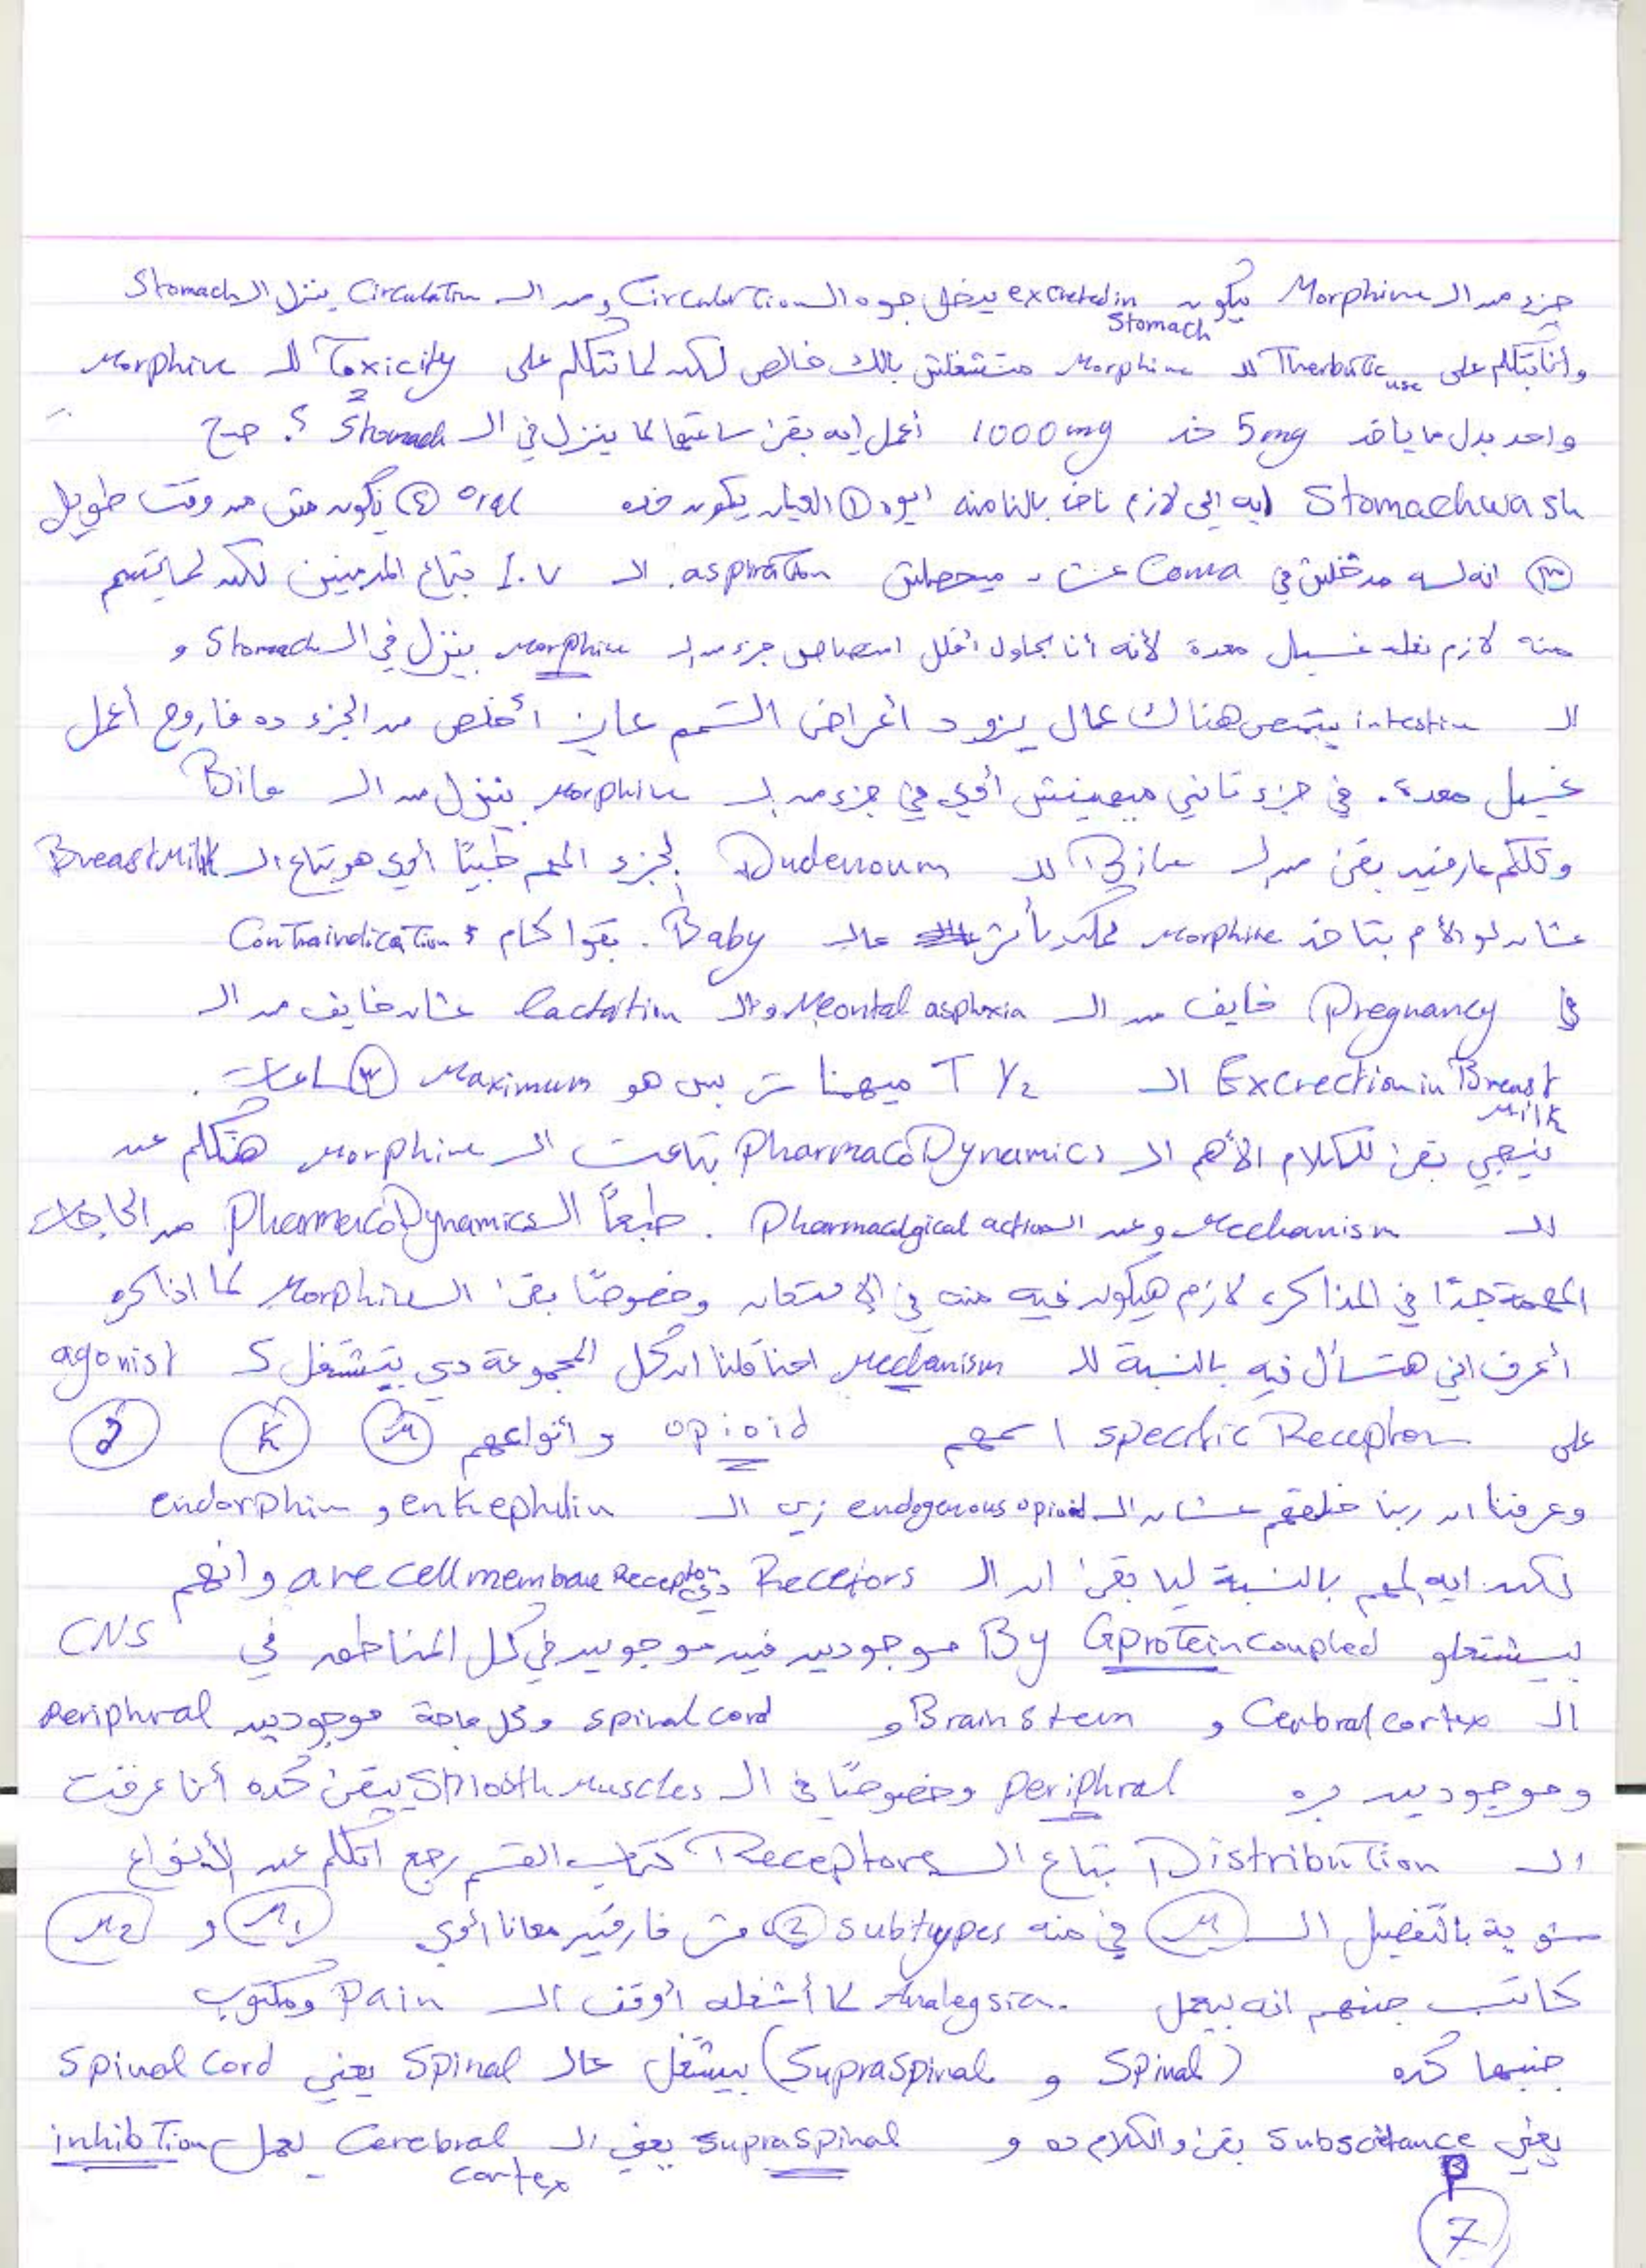 جزء من الـ Morphine بيكون excreted in Stomach بيدخل جوه الـ Circulation ومن الـ Circulation ينزل الـ Stomach
وأنا بتكلم على Therbutic use للـ Morphine متشغلش بالك خالص لكن لما تتكلم على Toxicity للـ Morphine
واحد بدل ما ياخد 5mg خد 1000mg أعمل ايه بقى ساعتها لما ينزل في الـ Stomach ؟. صح
Stomachwash ايه الي لازم ناخد بالنا منه ايوه ① العيان يكون خده oral ② يكون مش من وقت طويل
③ انه لسه مدخلش في Coma عشان ميحصلش aspiration. الـ I.V بتاع المدمنين لكن لما يتسمم
منه لازم نعمله غسيل معدة لأنه أنا بحاول أقلل امتصاص جزء من الـ morphine بينزل في الـ Stomach و
الـ intestin بيتمص هناك عمال يزود أعراض التسمم عايز أخلص من الجزء ده فاروح أعمل
غسيل معدة. في جزء تاني ميهمنيش أوي في جزء من الـ Morphine بينزل من الـ Bile
وكلكم عارفين بقى من الـ Bile للـ Dudenoum الجزء المهم طبيًا أوي هو بتاع الـ BreastMilk
عشان لو الأم بتاخد morphine ممكن يأثر عالـ Baby. بقوا كام Contraindication ؟
في Pregnancy خايف من الـ Neontal asphxia والـ lactation عشان خايف من الـ
Excrection in Breast Milk الـ T 1/2 ميهمناش بس هو Maximum ③ ساعات.
نيجي بقى للكلام الأهم الـ PharmacoDynamics بتاعت الـ Morphine هنتكلم عن
الـ Mechanism وعن الـ Pharmacolgical action. طبعًا الـ PharmacoDynamics من الحاجات
المهمة جدًا في المذاكرة لازم هيكون فيه منه في الامتحان وخصوصًا بقى الـ Morphine لما اذاكره
أعرف اني هتسأل فيه بالنسبة للـ Mechanism احنا قلنا ان كل المجموعة دي بتشتغل كـ agonist
على specific Receptor اسمهم opioid وأنواعهم μ K δ
وعرفنا ان ربنا خلقهم عشان الـ endogenous opioid زي الـ enkephilin و endorphin
لكن ايه المهم بالنسبة ليا بقى ان الـ Recetors دي are cellmembane Receptor وانهم
بيشتغلو By Gproteincoupled موجودين فين موجودين في كل المناطق في CNS
الـ Cerbral cortex و Brain stem و spinal cord وكل حاجة موجودين Periphral
وموجودين بره periphral وخصوصًا في الـ Smooth Muscles يبقى كده أنا عرفت
الـ Distribution بتاع الـ Receptors كتاب القسم رجع اتكلم عن الأنواع
شوية بالتفصيل الـ μ في منه ② subtypes مش فارقين معانا أوي μ1 و μ2
كاتب جنبهم انه بيعمل Analegsia. لما أشغله أوقف الـ Pain ومكتوب
جنبها كده (Spinal و Supraspinal) بيشتغل عالـ Spinal يعني Spinal Cord
يعني Subsctance P بقى والكلام ده و supraspinal يعني الـ Cerebral cortex يعمل inhibTion
7